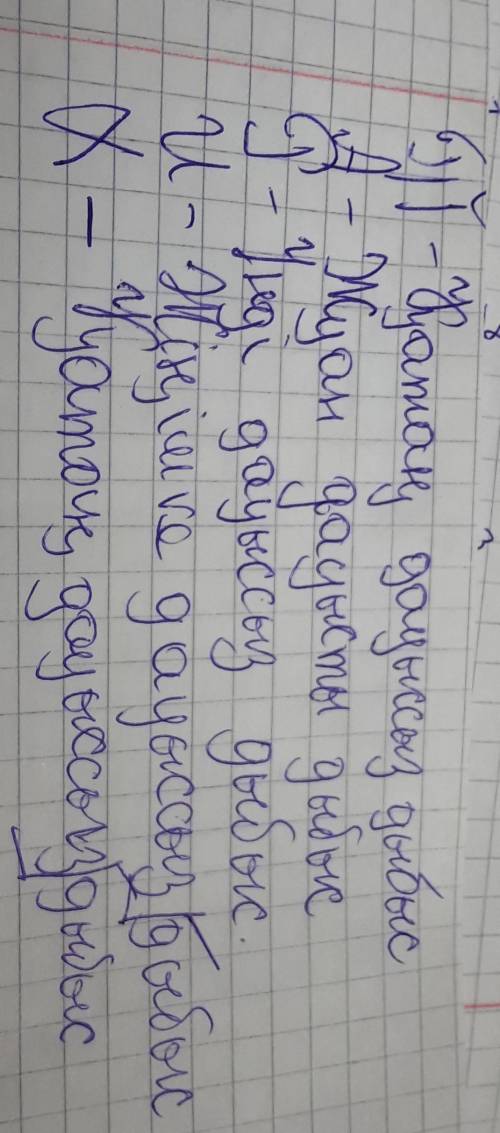 Т - Қатаң дауыссыз дыбыс
А - Жуан дауысты дыбыс
Р - Үнді дауыссыз дыбыс.
И - Жіңішке дауыссыз дыбыс
Х - Қатаң дауыссыз дыбыс